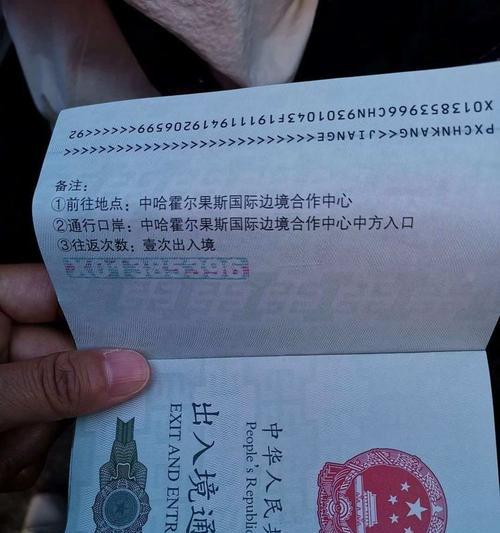 PXCHNKANG<<JIANGE<<<<<<<<<<<<<<<
X013853966CHN9301043F191119419206599<<92
备注：
①前往地点：中哈霍尔果斯国际边境合作中心
②通行口岸：中哈霍尔果斯国际边境合作中心中方入口
③往返次数：壹次出入境
X01385396
中华人民共
People's Republic
出入境通
EXIT AND ENTR